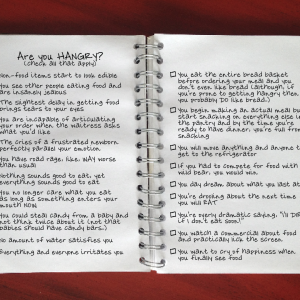 Are you HANGRY?
(check all that apply)
Non-food items start to look edible
You see other people eating food and
are insanely jealous
The slightest delay in getting food
brings tears to your eyes
You are incapable of articulating
your order when the waitress asks
what you'd like
The cries of a frustrated newborn
perfectly parallel your emotion
You have road rage, like, WAY worse
than usual
Nothing sounds good to eat, yet
everything sounds good to eat
You no longer care what you eat
as long as something enters your
mouth NOW
You could steal candy from a baby and
not think twice about it (not that
babies should have candy bars.)
No amount of water satisfies you
Everything and everyone irritates you
You eat the entire bread basket
before ordering your meal and you
don't even like bread (although, if
you're prone to getting hangry then
you probably DO like bread.)
You begin making an actual meal but
start snacking on everything else in
the pantry and by the time you're
ready to have dinner, you're full from
snacking
You will move anything and anyone to
get to the refrigerator
If you had to compete for food with a
wild bear, you would win
You day dream about what you last ate
You're drooling about the next time
you will EAT
You're overly dramatic saying, "I'll DIE
if I don't eat SOON!"
You watch a commercial about food
and practically lick the screen
You want to cry of happiness when
you finally see food